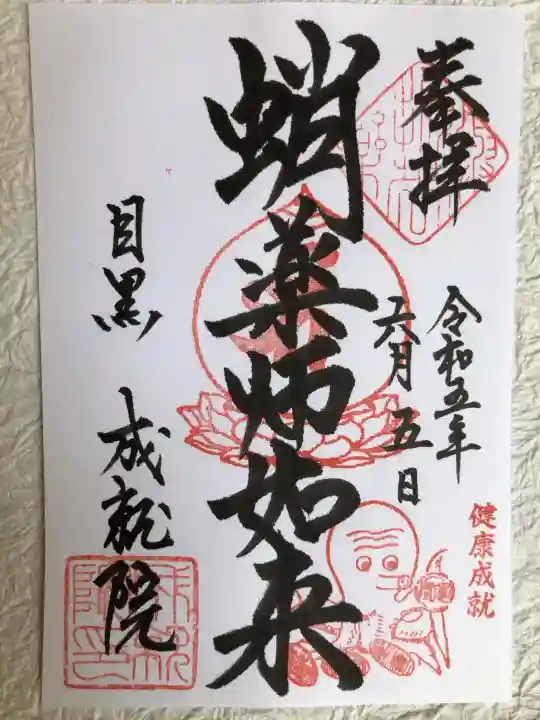 奉拝
令和五年
六月五日
健康成就
蛸薬師如来
目黒 成就院